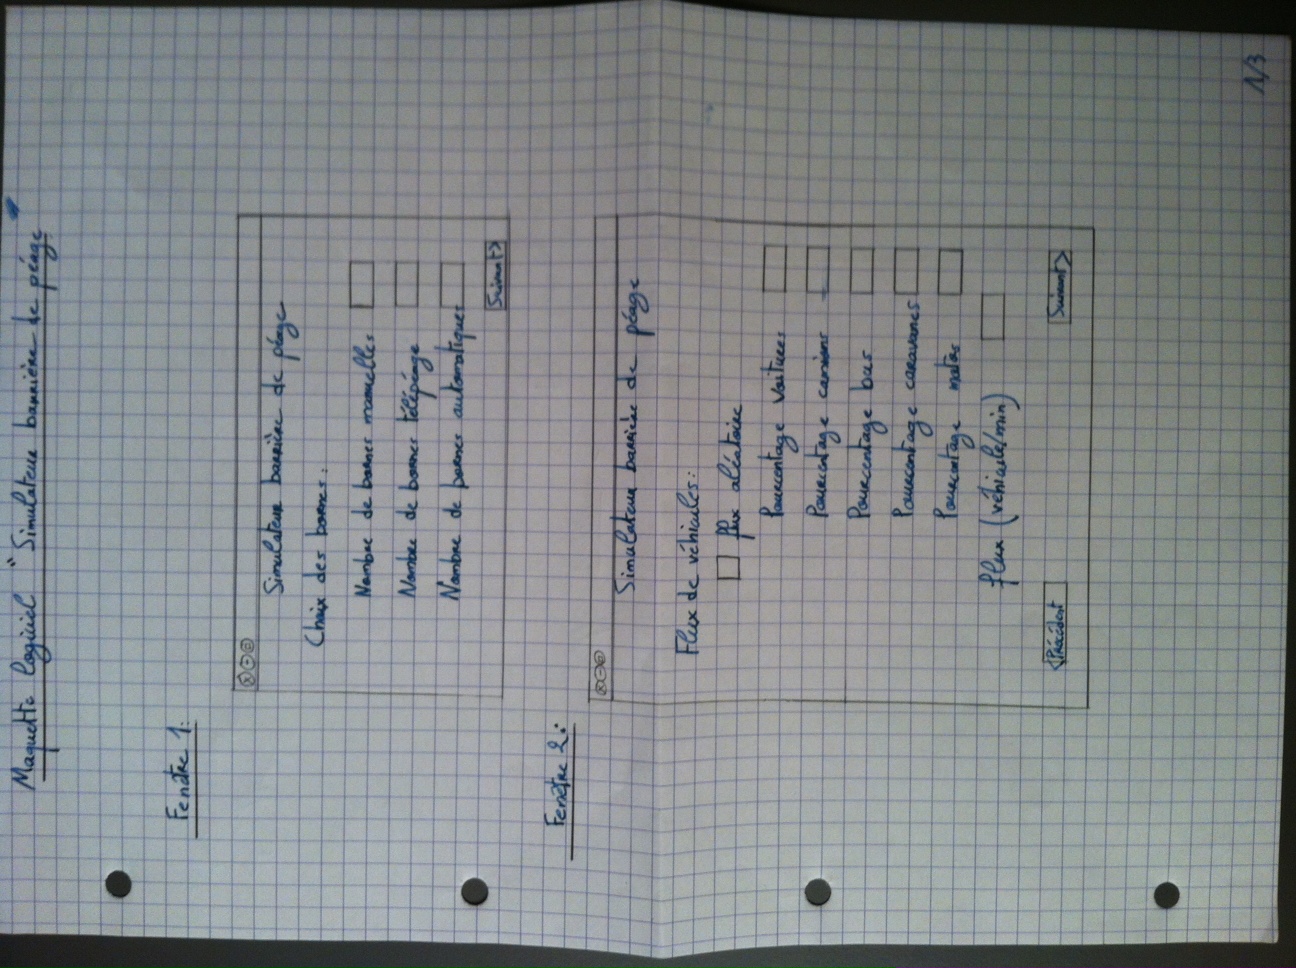 Maquette logiciel "Simulateur barrière de péage"
Fenêtre 1:
Simulateur barrière de péage
Choix des bornes:
Nombre de bornes manuelles
Nombre de bornes télépéage
Nombre de bornes automatiques
Suivant>
Fenêtre 2:
Simulateur barrière de péage
Flux de véhicules:
flux aléatoire
Pourcentage voitures
Pourcentage camions
Pourcentage bus
Pourcentage caravanes
Pourcentage motos
flux (véhicule/min)
<Précédent Suivant>
1/3